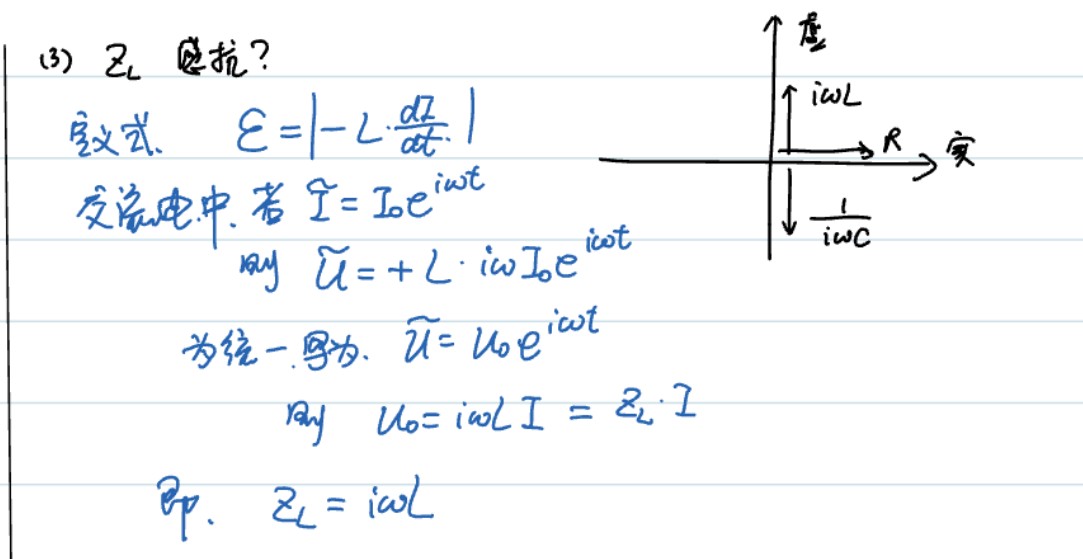 (3) Z_L 感抗?
定义式. ℰ = |-L·dI/dt|
交流电中. 若 Ĩ = I₀e^{iωt}
则 Ũ = +L·iωI₀e^{iωt}
为统一.写为. Ũ = U₀e^{iωt}
则 U₀ = iωLI = Z_L·I
即. Z_L = iωL
虚
iωL
R 实
1/iωC